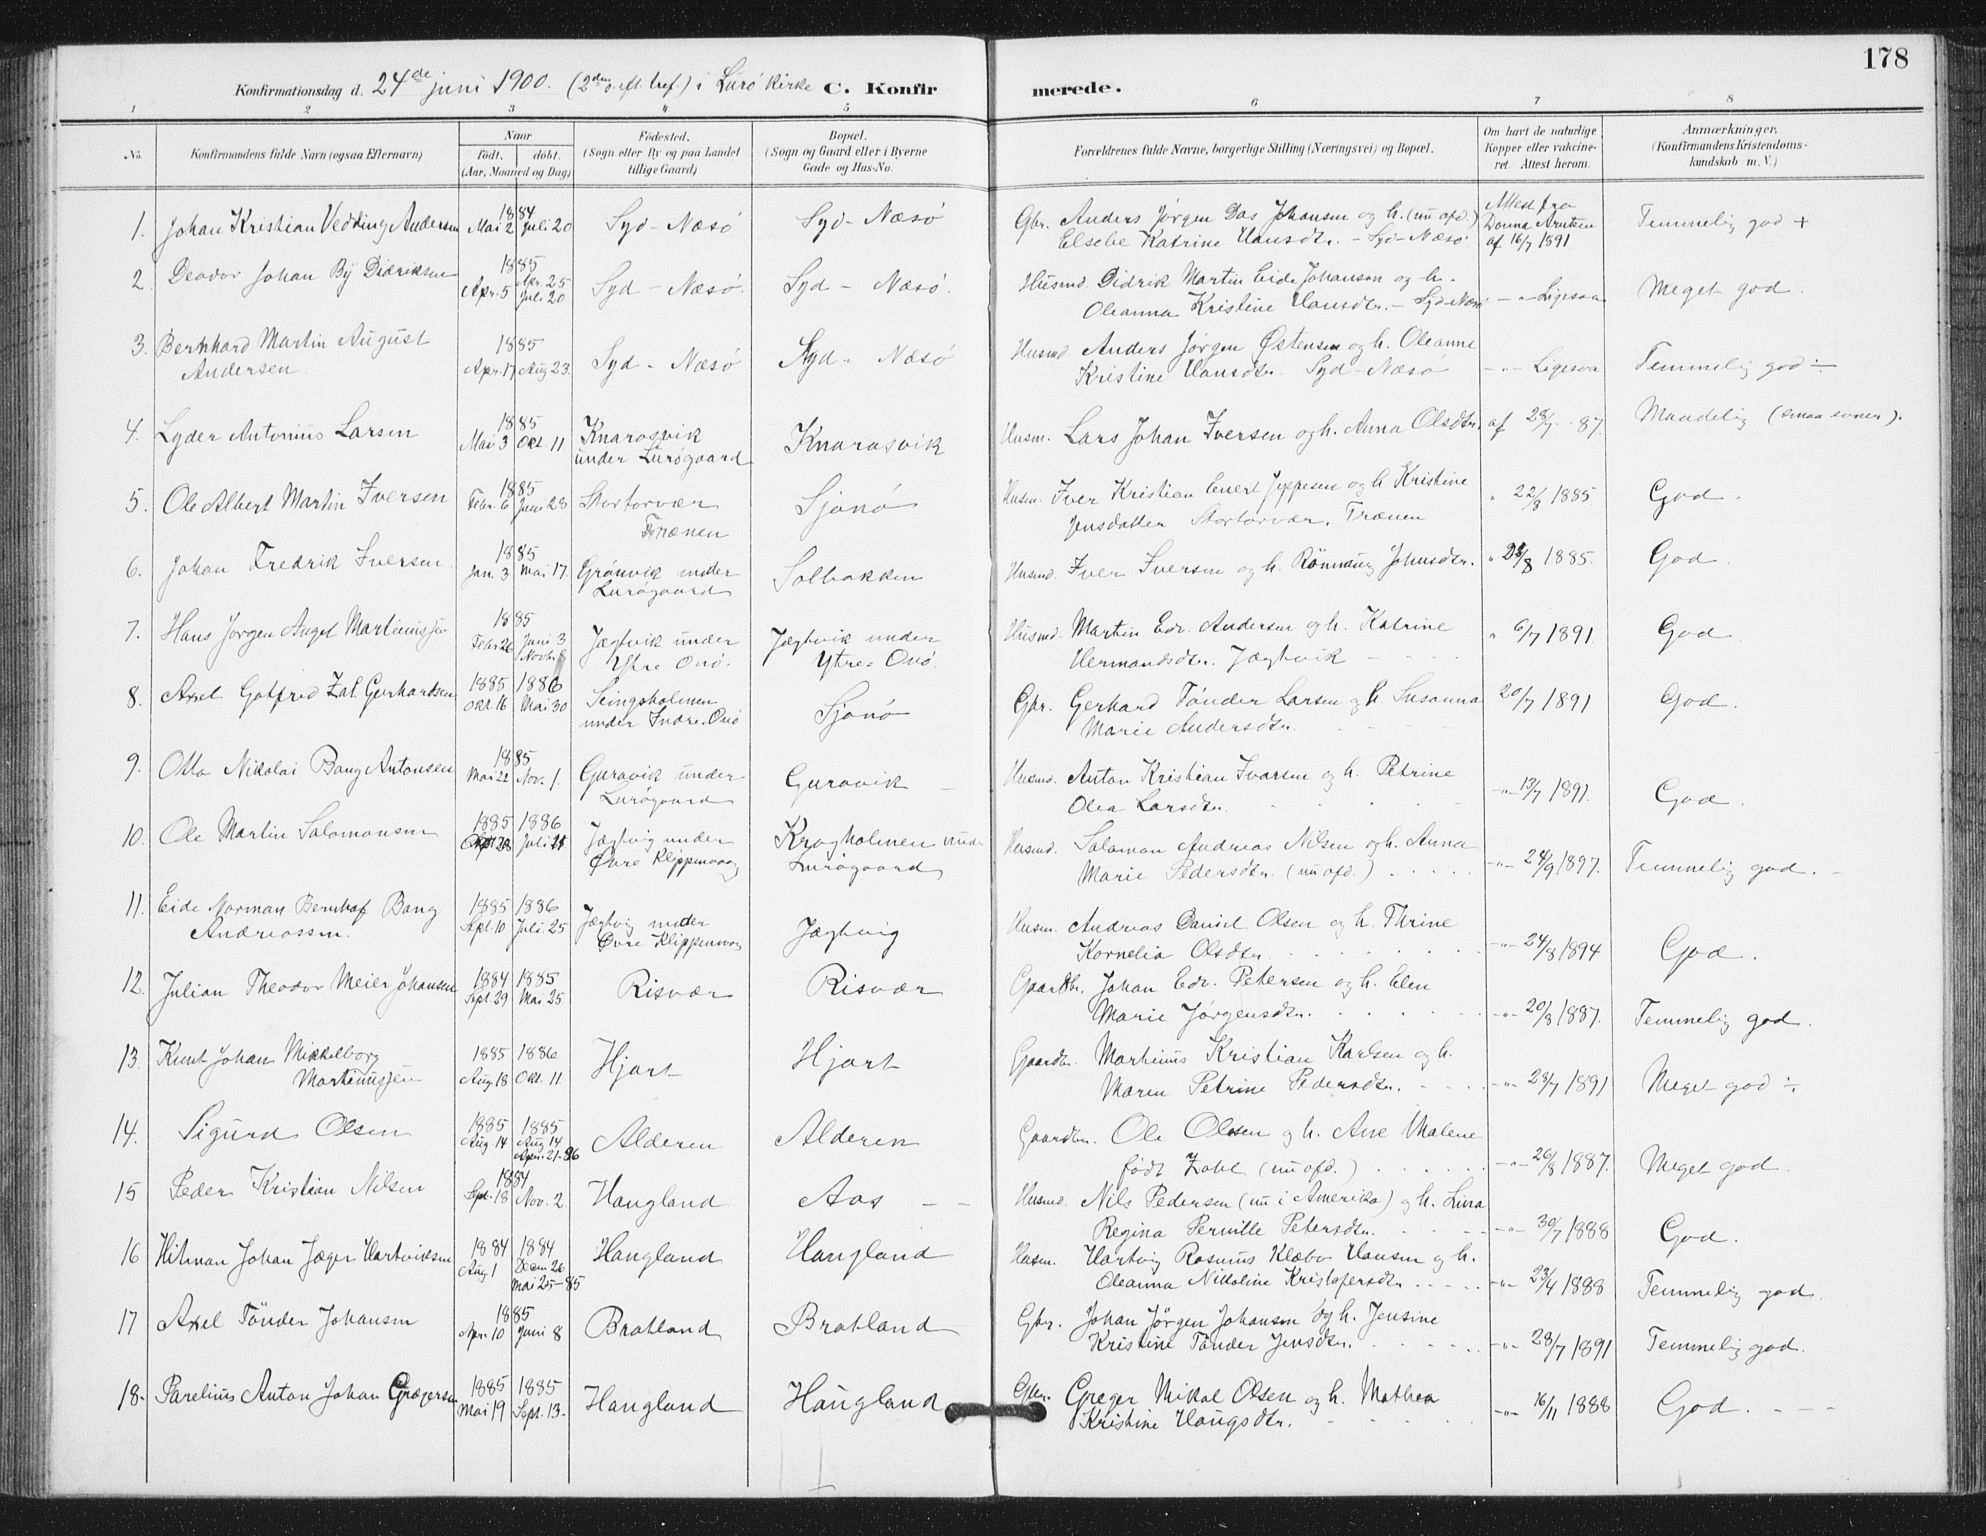 178
Konfirmationsdag d. 24de juni 1900. i Lurø Kirke C. Konfirmerede.
1 2 3 4 5 6 7 8
No. Konfirmandens fulde Navn (ogsaa Efternavn) Naar født. døbt. (Aar, Maaned og Dag) Fødested. (Sogn eller By og paa Landet tillige Gaard) Bopæl. (Sogn og Gaard eller i Byerne Gade og Hus-No. Forældrenes fulde Navne, borgerlige Stilling (Næringsvei) og Bopæl. Om havt de naturlige Kopper eller vakcineret. Attest herom. Anmærkninger. (Konfirmandens Kristendomskundskab m. V.)
1. Johan Kristian Vedding Andersen 1884 Mai 2 Juli 20 Syd-Næsö Syd-Næsö Gbr. Anders Jørgen Das Johansen og h. (nu ofd.)
Elsebe Katrine Hansdtr. - Syd-Næsö Attest fra Donna Arntzen af 16/7 1891. Temmelig god +
2. Deodor Johan Bÿ Didriksen 1885 Apr. 5 Apr. 25 Juli 20 Syd-Næsö. Syd-Næsö. Husmd. Didrik Martin Eide Johansen og h.
Oleanna Kristine Hansdtr. - Syd-Næsö - " - Ligesaa Meget god.
3. Bernhard Martin August
Andersen. 1885 Apr. 17 Aug 23. Syd-Næsö Syd-Næsö Husmd Anders Jørgen Östensen og h. Oleanne
Kristine Hansdtr. Syd-Næsö - " - Ligesaa Temmelig god ÷
4. Lyder Antonius Larsen 1885 Mai 3 Okt. 11. Knarasvik
under Lurøgaard Knarasvik Husm. Lars Johan Iversen og h. Anna Olsdtr. af 28/7 87. Maadelig (smaa evner).
5. Ole Albert Martin Iversen 1885 Febr. 6 Juni 28 Stortorvær
Trænen Sjonö Husm. Iver Kristian Evert Jeppesen og h Kristine
Jensdatter Stortorvær, Trænen " 22/8 1885. God.
6. Johan Fredrik Iversen. 1885 Jan. 3 Mai 17. Grönvik under
Lurøgaard Solbakken Husmd. Iver Iversen og h. Johnsdtr. " /8 1885. God.
7. Hans Jørgen Angel Martinussen 1885 Febr 26 Juni 3 Novbr. 8 Jægtvik under
Ytre Onö. Jægtvik under
Ytre-Onö. Husmd. Martin Edv. Andersen og h. Katrine
Hermandsdtr. Jægtvik " 6/7 1891. God
8. Axel Gotfred Zal. Gerhardsen 1885 Okt. 16 1886 Mai 30 Seingsholmen
under Indre-Onö Sjonö Gbr. Gerhard Tönder Larsen og h Susanna
Marie Andersdtr. 20/7 1891 God.
9. Otto Nikolai Bang Antonsen 1885 Mai 22 Nov. 1. Guravik under
Lurøgaard Guravik Husmd. Anton Kristian Ivarsen og h. Petrine
Olea Larsdtr. - " - 13/7 1891. God.
10. Ole Martin Salomonsen 1885 1886 Juli Jægtvig under
Övre Klippenvaag Kragholmen und.
Lurøgaard Husmd. Salomon Andreas Nilsen og h. Anna
Marie Pedersdtr. (nu ofd.) - " - 24/9 1897. Temmelig god.
11. Eide Norman Bernhof Bang
Andreassen. 1885 Sept. 10 1886 Juli 25 Jægtvig under
Övre Klippenvaag Jægtvig Husm. Andreas Daniel Olsen og h. Thrine
Kornelia Olsdtr. - " - 24/8 1894 God.
12. Julian Theodor Meier Johansen 1884 Sept. 29 1885 Mai 25 Risvær Risvær Gaardbr. Johan Edv. Petersen og h. Elen
Marie Jørgensdtr. - " - 20/8 1887. Temmelig god.
13. Knut Johan Mikkelborg
Martinussen 1885 Aug. 18 1886 Okt. 11 Hjart Hjart Gaardbr. Martinus Kristian Karlsen og h.
Maren Petrine Pedersdtr. - " - 28/7 1891 Meget god ÷
14. Sigurd Olsen 1885 Aug. 14 1885 Aug 14 Apr. 21-86 Alderen Alderen Gaardbr. Ole Olsen og h. Ane Malene
født Zahl (nu ofd.) - " - 26/8 1887. Meget god.
15 Peder Kristian Nilsen 1884 Sept. 18 Nov. 2. Haugland Aas Husmd. Nils Pedersen (nu i Amerika) og h. Lina
Regina Pernille Petersdtr. - " - 30/7 1888 God.
16 Hilman Johan Jæger Hartviksen 1884 Aug 1 1884 Decm 26 Mai 25-85 Haugland Haugland Husm. Hartvig Rasmus Klæbo Hansen og h.
Oleanna Nikoline Kristofersdtr. - " - 23/4 1888 Temmelig god.
17 Axel Tönder Johansen 1885 Apr. 10 Juni 8 Bratland Bratland Gbr. Johan Jørgen Johansen og h. Jensine
Kristine Tönder Jensdtr. - " - 28/7 1891 Temmelig god.
18. Parelius Anton Johan Grægersen 1885 Mai 19 1885 Sept. 13. Haugland Haugland Gbr. Greger Mikal Olsen og h. Mathea
Kristine Haugsdtr. - " - 16/11 1888 God.